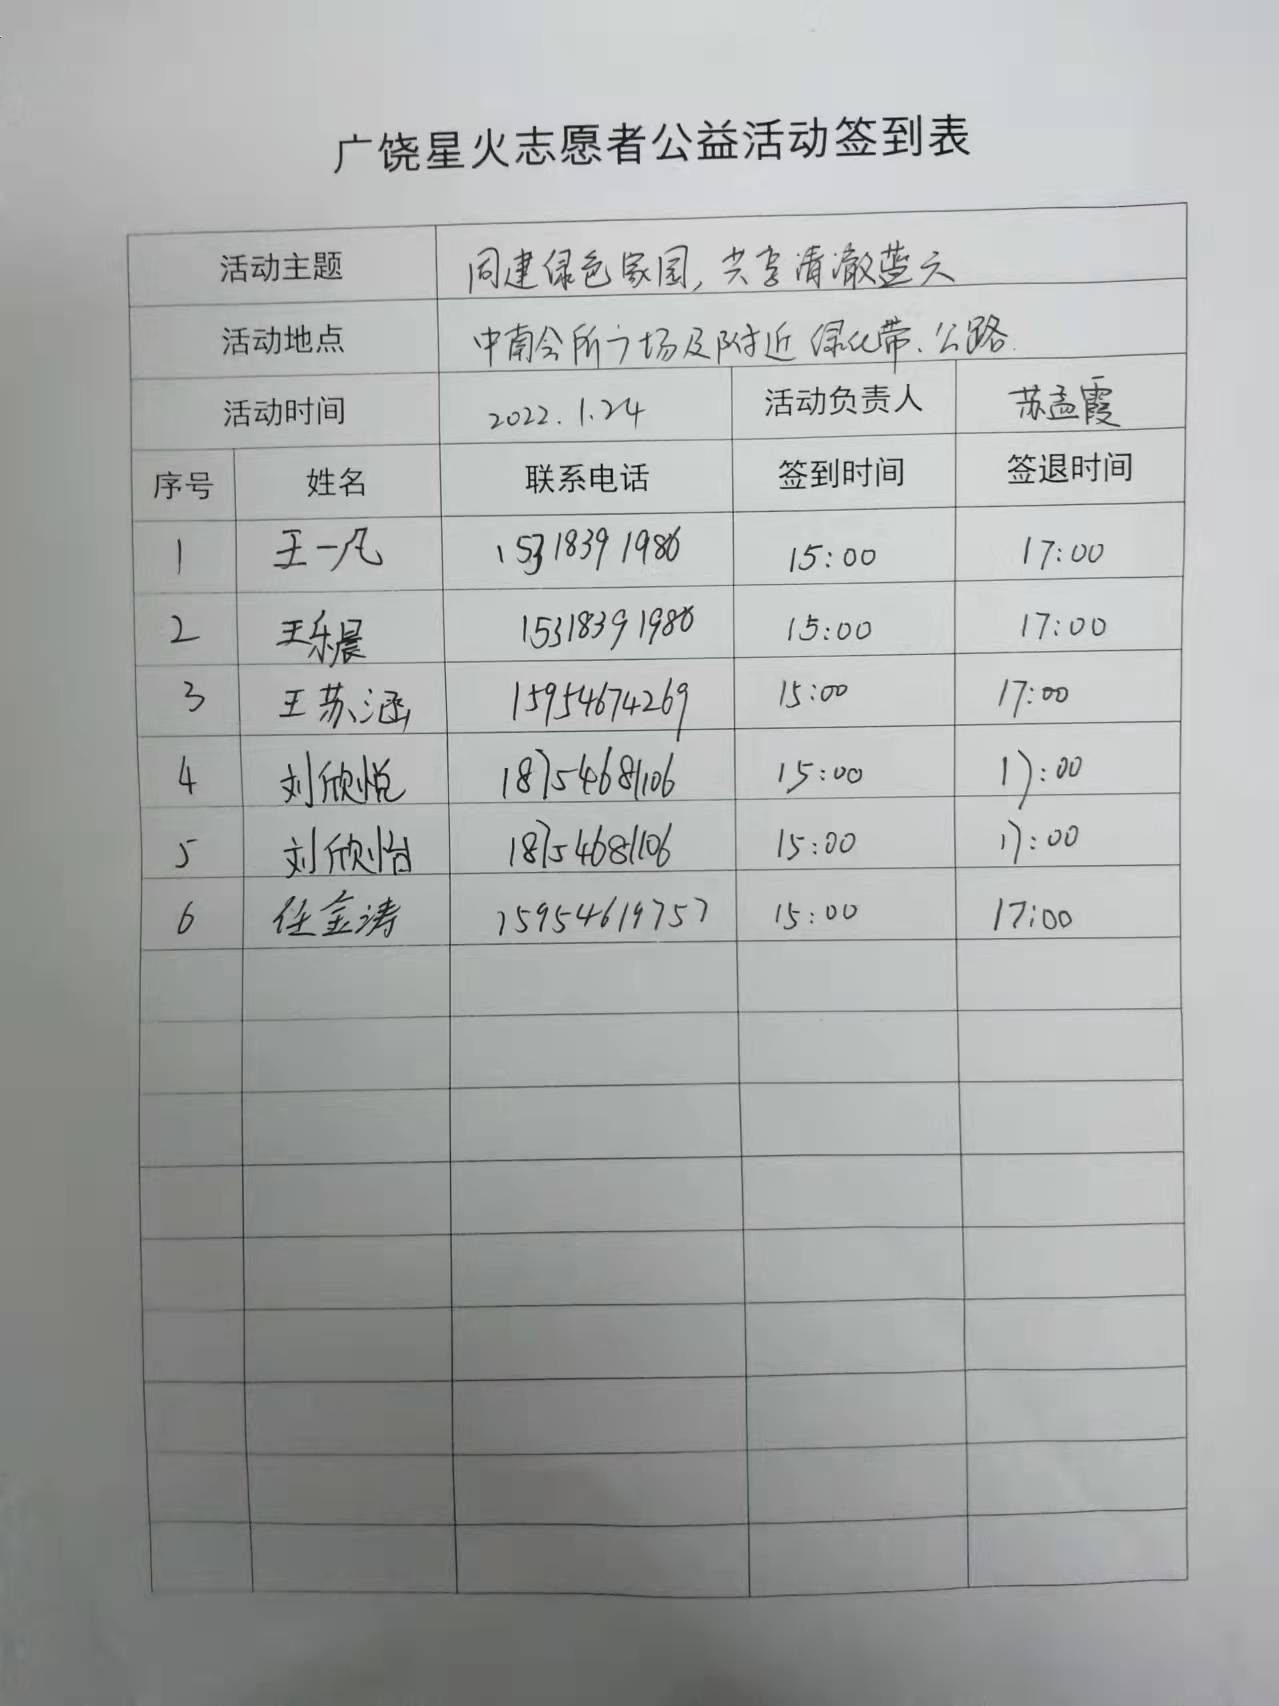 广饶星火志愿者公益活动签到表
活动主题 同建绿色家园,共享清澈蓝天
活动地点 中南会所广场及附近绿化带、公路.
活动时间 2022.1.24 活动负责人 苏孟霞
序号 姓名 联系电话 签到时间 签退时间
1 王一凡 15318391986 15:00 17:00
2 王乐晨 15318391986 15:00 17:00
3 王苏涵 15954674269 15:00 17:00
4 刘欣悦 18754681106 15:00 17:00
5 刘欣怡 18754681106 15:00 17:00
6 任金涛 15954619757 15:00 17:00